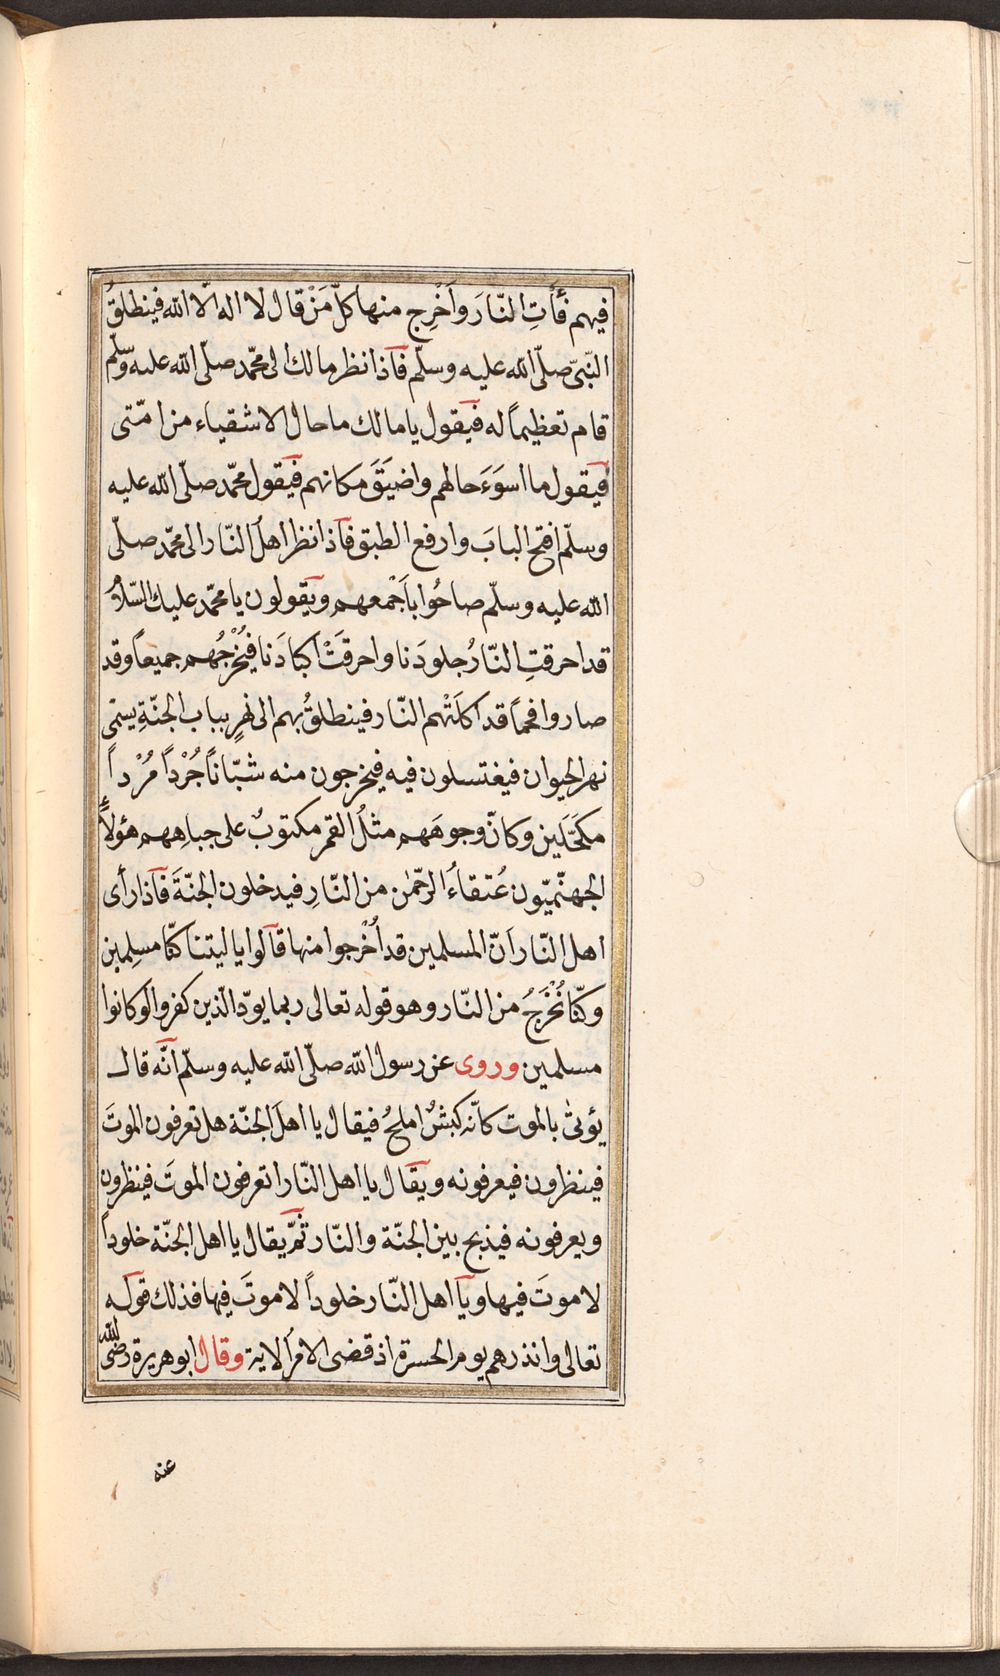 فيهم فأْتِ النّارَ وأَخْرِج منها كلّ مَنْ قال لا اله الّا الله فينطلقُ
النّبىّ صلّى الله عليه وسلّم فاذا نظر مالك الى محمّد صلّى الله عليه وسلّم
قام تعظيماً له فيقول يا مالك ما حال الاشقياء من امّتى
فيقول ما اسوَءَ حالهم واضيَقَ مكانهم فيقول محمّد صلّى الله عليه
وسلّم افتح البابَ وارفع الطبق فاذا نظر اهلُ النّار الى محمّد صلّى
الله عليه وسلّم صاحُوا باَجْمعهم ويقولون يا محمّد عليك السّلامُ
قد احرقتِ النّارُ جلودَنا واحرقَتْ اكبادَنا فيُخْرِجُهم جميعاً وقد
صاروا فحماً قد اكلَتْهم النّار فينطلقُ بهم الى نهرٍ بباب الجنّةِ يسمّى
نهر الحيوان فيغتسلون فيه فيخرجون منه شبّاناً جُرْداً مُرْداً
مكحّلَين وكانّ وجوهَهم مثلُ القمر مكتوبٌ على جباههم هؤلاءِ
الجهنّميّون عُتقاءُ الرّحمٰن من النّارِ فيدخلون الجنّةَ فاذا رأى
اهل النّار اَنّ المسلمين قد اُخْرجوا منها قالوا يا ليتنا كنّا مسلِمين
وكنّا نُخْرَجُ من النّار وهو قوله تعالى ربما يودّ الّذين كفروا لو كانوا
مسلمين وروى عن رسول الله صلّى الله عليه وسلّم انّه قال
يؤتىٰ بالموت كانّه كبشٌ املحُ فيقال يا اهلَ الجنّة هل تعرفون الموتَ
فينظرون فيعرفونه ويقال يا اهل النّار اتعرفون الموتَ فينظرون
ويعرفونه فيذبح بين الجنّة والنّار ثمّ يقال يا اهل الجنّة خلوداً
لا موتَ فيها ويا اهل النّار خلوداً لا موتَ فيها فذلك قوله
تعالى وانذرهم يوم الحسرة اذ قضى الامرُ الاية وقال ابو هريرة رضى الله
عنه